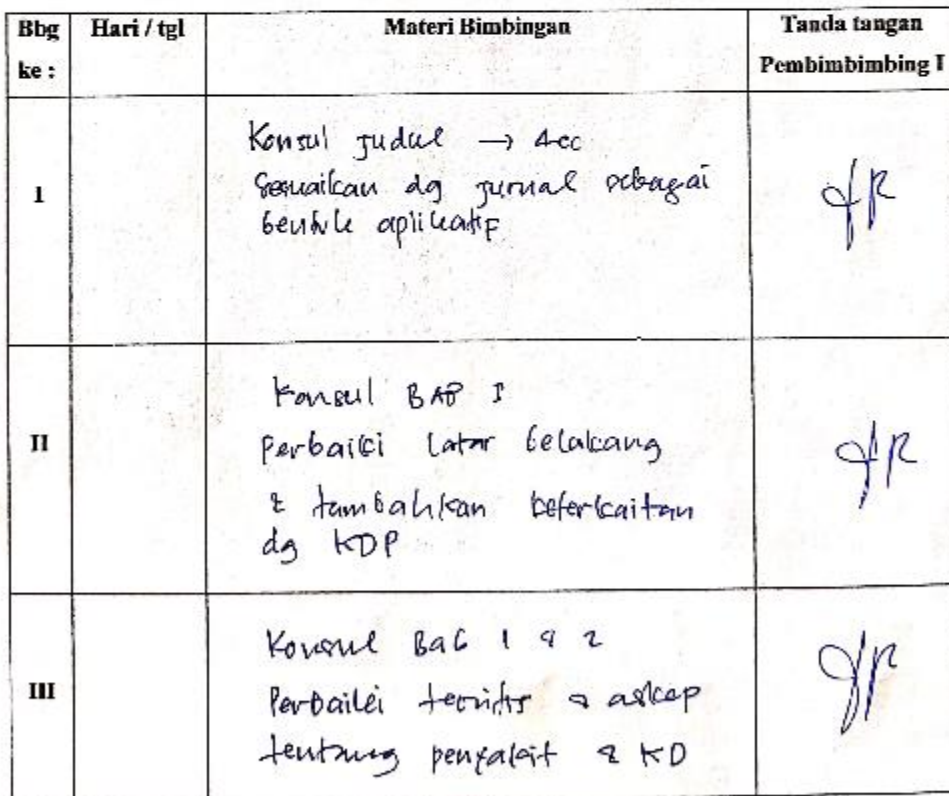 Bbg ke :
Hari / tgl
Materi Bimbingan
Tanda tangan
Pembimbimbing I
I
Konsul judul → Acc
Sesuaikan dg jurnal sebagai
bentuk aplikatif
II
Konsul BAB I
Perbaiki latar belakang
& tambahkan keterkaitan
dg KDP
III
Konsul Bab 1 & 2
Perbaiki teoritis & askep
tentang penyakit & KD